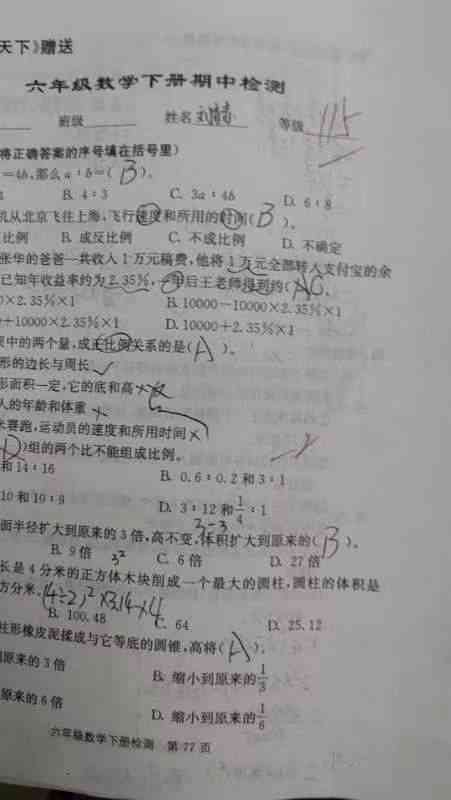 天下》赠送
六年级数学下册期中检测
班级 姓名 等级 115
将正确答案的序号填在括号里)
=4b,那么a:b=( B )。
B. 4:3 C. 3a:4b D. 6:8
机从北京飞往上海,飞行速度和所用的时间( B )。
比例 B. 成反比例 C. 不成比例 D. 不确定
张华的爸爸一共收入1万元稿费,他将1万元全部转入支付宝的余
已知年收益率约为2.35%,一年后王老师得到约( C )。
0×2.35%×1 B. 10000-10000×2.35%×1
0+10000×2.35%×1 D. 10000+2.35%×1
中的两个量,成正比例关系的是( A )。
形的边长与周长 ✓
形面积一定,它的底和高 ×
人的年龄和体重 ×
米赛跑,运动员的速度和所用时间 ×
( D )组的两个比不能组成比例。
和14:16 B. 0.6:0.2和3:1
10和10:9 D. 3:12和1/4:1
面半径扩大到原来的3倍,高不变,体积扩大到原来的( B )。
B. 9倍 3² C. 6倍 D. 27倍
长是4分米的正方体木块削成一个最大的圆柱,圆柱的体积是
方分米。 (4÷2)²×3.14×4
B. 100.48 C. 64 D. 25.12
柱形橡皮泥揉成与它等底的圆锥,高将( A )。
到原来的3倍 B. 缩小到原来的1/3
原来的6倍 D. 缩小到原来的1/6
六年级数学下册检测 第77页